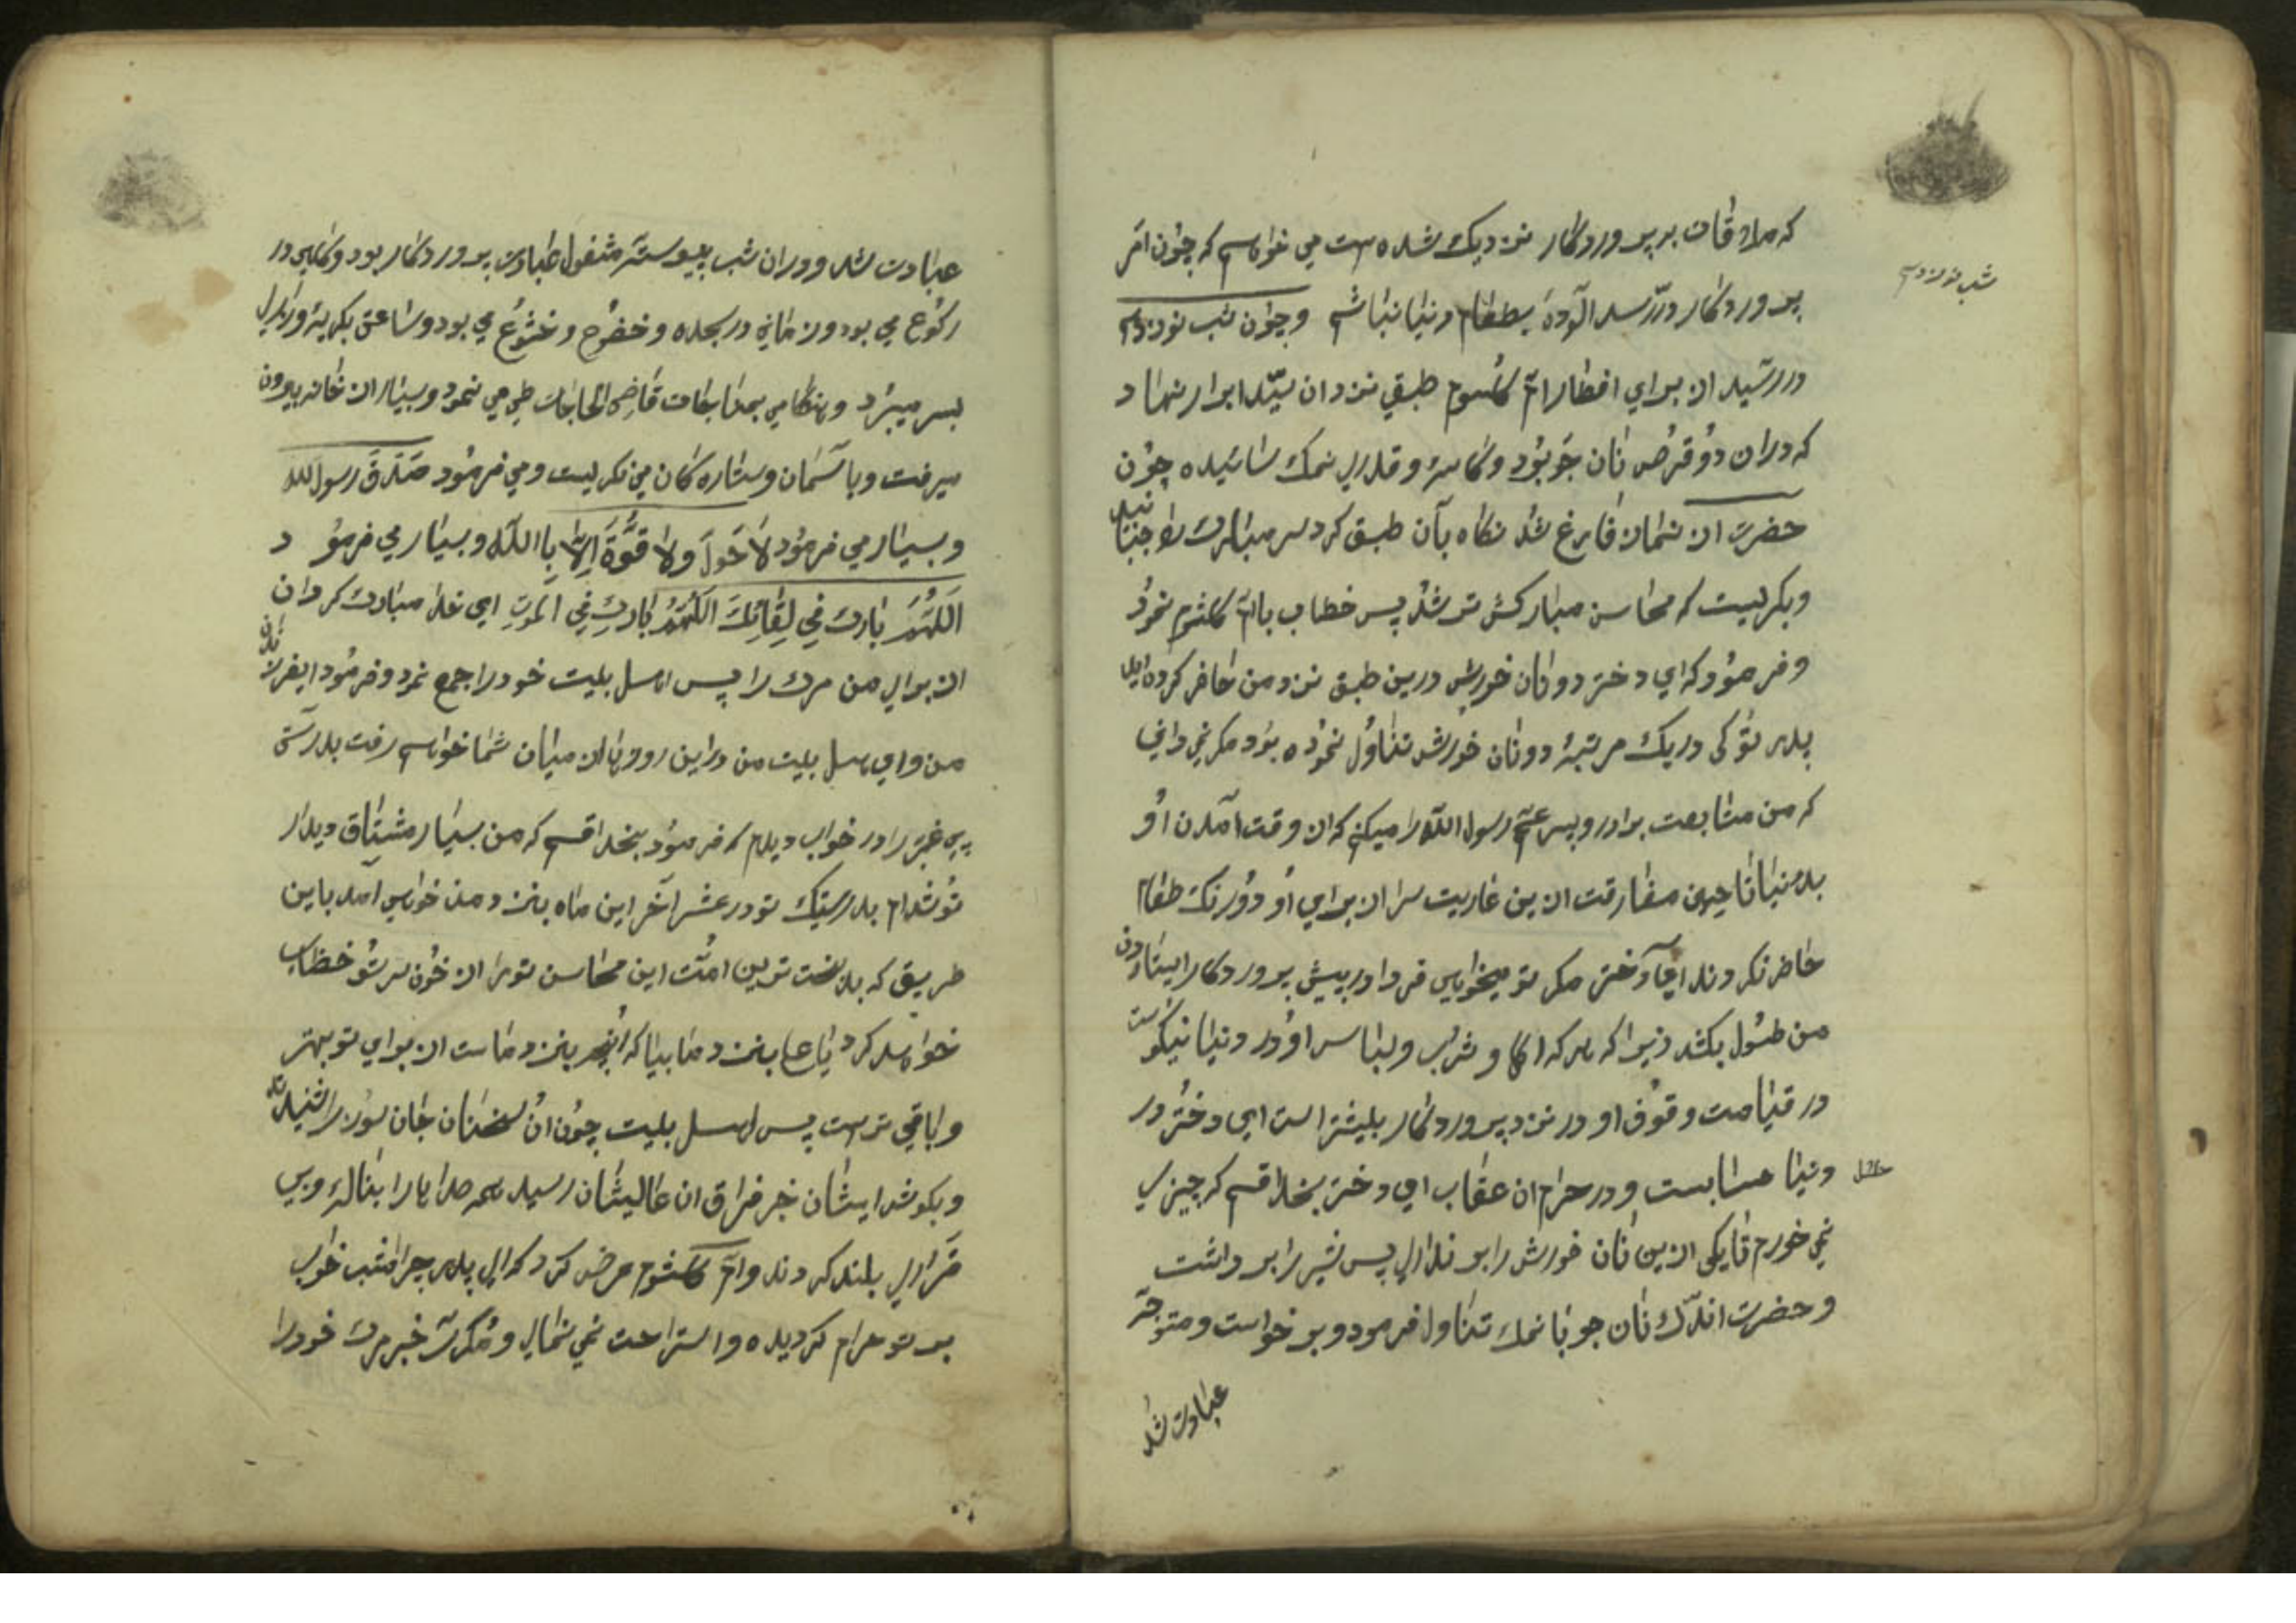 که ملاقات بر پروردگار نزدیک شده است می خواهم که چون امر
شب نوزدهم
پروردگار دررسد آلودهٔ بطعام دنیا نباشم وچون شب نوزدهم
دررسید از برای افطار ام کلثوم طبقی نزد ان سیّد ابرار نهاد
که دران دو قرص نان جو بود وکاسهٔ وقدری نمک سائیده چون
حضرت از نماز فارغ شد نگاه بآن طبق کرد سر مبارک را جنبانید
وبگریست که محاسن مبارکش تر شد پس خطاب بام کلثوم نمود
وفرمود که ای دختر دو نان خورش درین طبق نزد من حاضر کرده
پدر تو کی دریک مرتبهٔ دو نان خورش تناول نموده بود مگر نمی دانی
که من متابعت برادر وپسر عم رسول الله را میکنم که از وقت آمدن او
بدنیا تا حین مفارقت ازین عاریت سرا از برای او دو رنگ طعام
حاضر نکردند ای دختر مگر تو میخواهی فردا در پیش پروردگار ایستادن
من طول بکشد زیرا که هر که اکل و شرب ولباس او در دنیا نیکوست
در قیامت وقوف او در نزد پروردگار بیشتر است ای دختر در
دنیا حسابست ودر حرام ان عقاب ای دختر بخدا قسم که چیزی
حلال
نمی خورم تا یکی ازین نان خورش را بر نداری پس شیر را برداشت
وحضرت اندک نان جو با نمک تناول فرمود وبرخواست ومتوجه
عبادت شد
عبادت شد ودران شب پیوسته مشغول عبادت پروردگار بود وگاهی در
رکوع می بود وزمانی در سجده وخضوع وخشوع می بود وساعتی بگریه وزاری
بسر میبرد وهنگامی بمناجات قاضی الحاجات طی می نمود وبسیار ان خانه بیرون
میرفت وبا آسمان وستاره گان می نگریست ومی فرمود صَدَقَ رسول الله
وبسیار می فرمود لا حَولَ ولا قوَّةَ اِلّا بِاالله وبسیار می فرمود
اَللهُمَّ بارک فی لِقائِکَ اَللهُمَّ بارِک فِی الموتِ ای خدا مبارک گردان
از برای من مرگ را پس اهل بیت خود را جمع نمود وفرمود ای فرزندان
من وای اهل بیت من دراین روزها از میان شما خواهم رفت بدرستی
پیغمبر را در خواب دیدم که فرمود بخدا قسم که من بسیار مشتاق دیدار
تو شدم بدرستیکه تو در عشر آخر این ماه بنزد من خواهی آمد باین
طریق که بدبخت ترین امّت این محاسن تو را از خون سر تو خضاب
خواهد کرد یا علی بنزد ما بیا که آنچه بنزد ماست از برای تو بهتر
وباقی تر است پس اهل بیت چون ان سخنان جان سوز را شنیدند
وبگوش ایشان خبر فراق ان عالیشان رسید همه صدا ها را بناله وبی
قراری بلند کردند وام کلثوم عرض کرد که ای پدر چرا امشب خواب
بر تو حرام گردیده واستراحت نمی نمائی ومگر خبر مرگ خود را